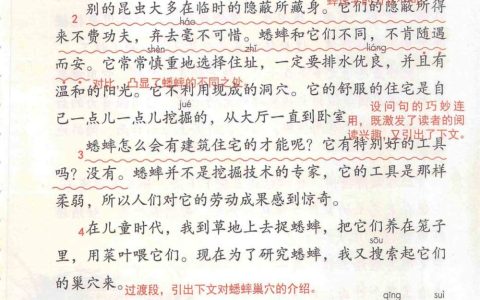 2 别的昆虫大多在临时的隐蔽所藏身。它们的隐蔽所得
háo
来不费功夫，弃去毫不可惜。蟋蟀和它们不同，不肯随遇
shèn zhǐ liáng
而安。它常常慎重地选择住址，一定要排水优良，并且有
对比，凸显了蟋蟀的不同之处
温和的阳光。它不利用现成的洞穴。它的舒服的住宅是自
jué
己一点儿一点儿挖掘的，从大厅一直到卧室
设问句的巧妙连
用，既激发了读者的阅
读兴趣，又引出了下文。
3 蟋蟀怎么会有建筑住宅的才能呢？它有特别好的工具
吗？没有。蟋蟀并不是挖掘技术的专家，它的工具是那样
柔弱，所以人们对它的劳动成果感到惊奇。
4 在儿童时代，我到草地上去捉蟋蟀，把它们养在笼子
sōu
里，用菜叶喂它们。现在为了研究蟋蟀，我又搜索起它们
的巢穴来。
过渡段，引出下文对蟋蟀巢穴的介绍。
qīng suì